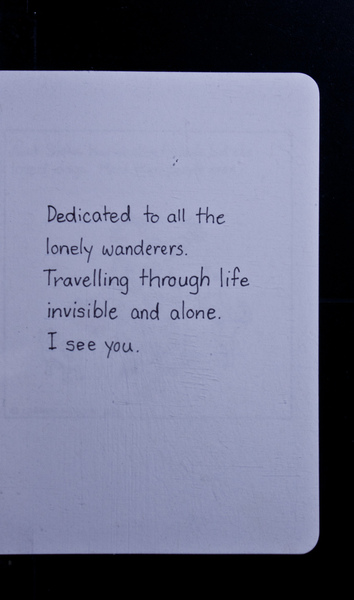 Dedicated to all the
lonely wanderers.
Travelling through life
invisible and alone.
I see you.